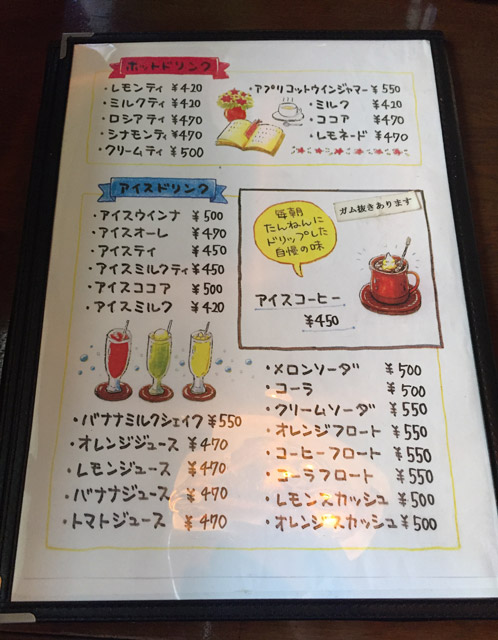 ホットドリンク
・レモンティ ¥420
・ミルクティ ¥420
・ロシアティ ¥470
・シナモンティ ¥470
・クリームティ ¥500
・アプリコットウインジャマー ¥550
・ミルク ¥420
・ココア ¥470
・レモネード ¥470
アイスドリンク
・アイスウインナ ¥500
・アイスオーレ ¥470
・アイスティ ¥450
・アイスミルクティ ¥450
・アイスココア ¥500
・アイスミルク ¥420
毎朝
たんねんに
ドリップした
自慢の味
ガム抜きあります
アイスコーヒー
¥450
・バナナミルクシェイク ¥550
・オレンジジュース ¥470
・レモンジュース ¥470
・バナナジュース ¥470
・トマトジュース ¥470
・メロンソーダ ¥500
・コーラ ¥500
・クリームソーダ ¥550
・オレンジフロート ¥550
・コーヒーフロート ¥550
・コーラフロート ¥550
・レモンスカッシュ ¥500
・オレンジスカッシュ ¥500